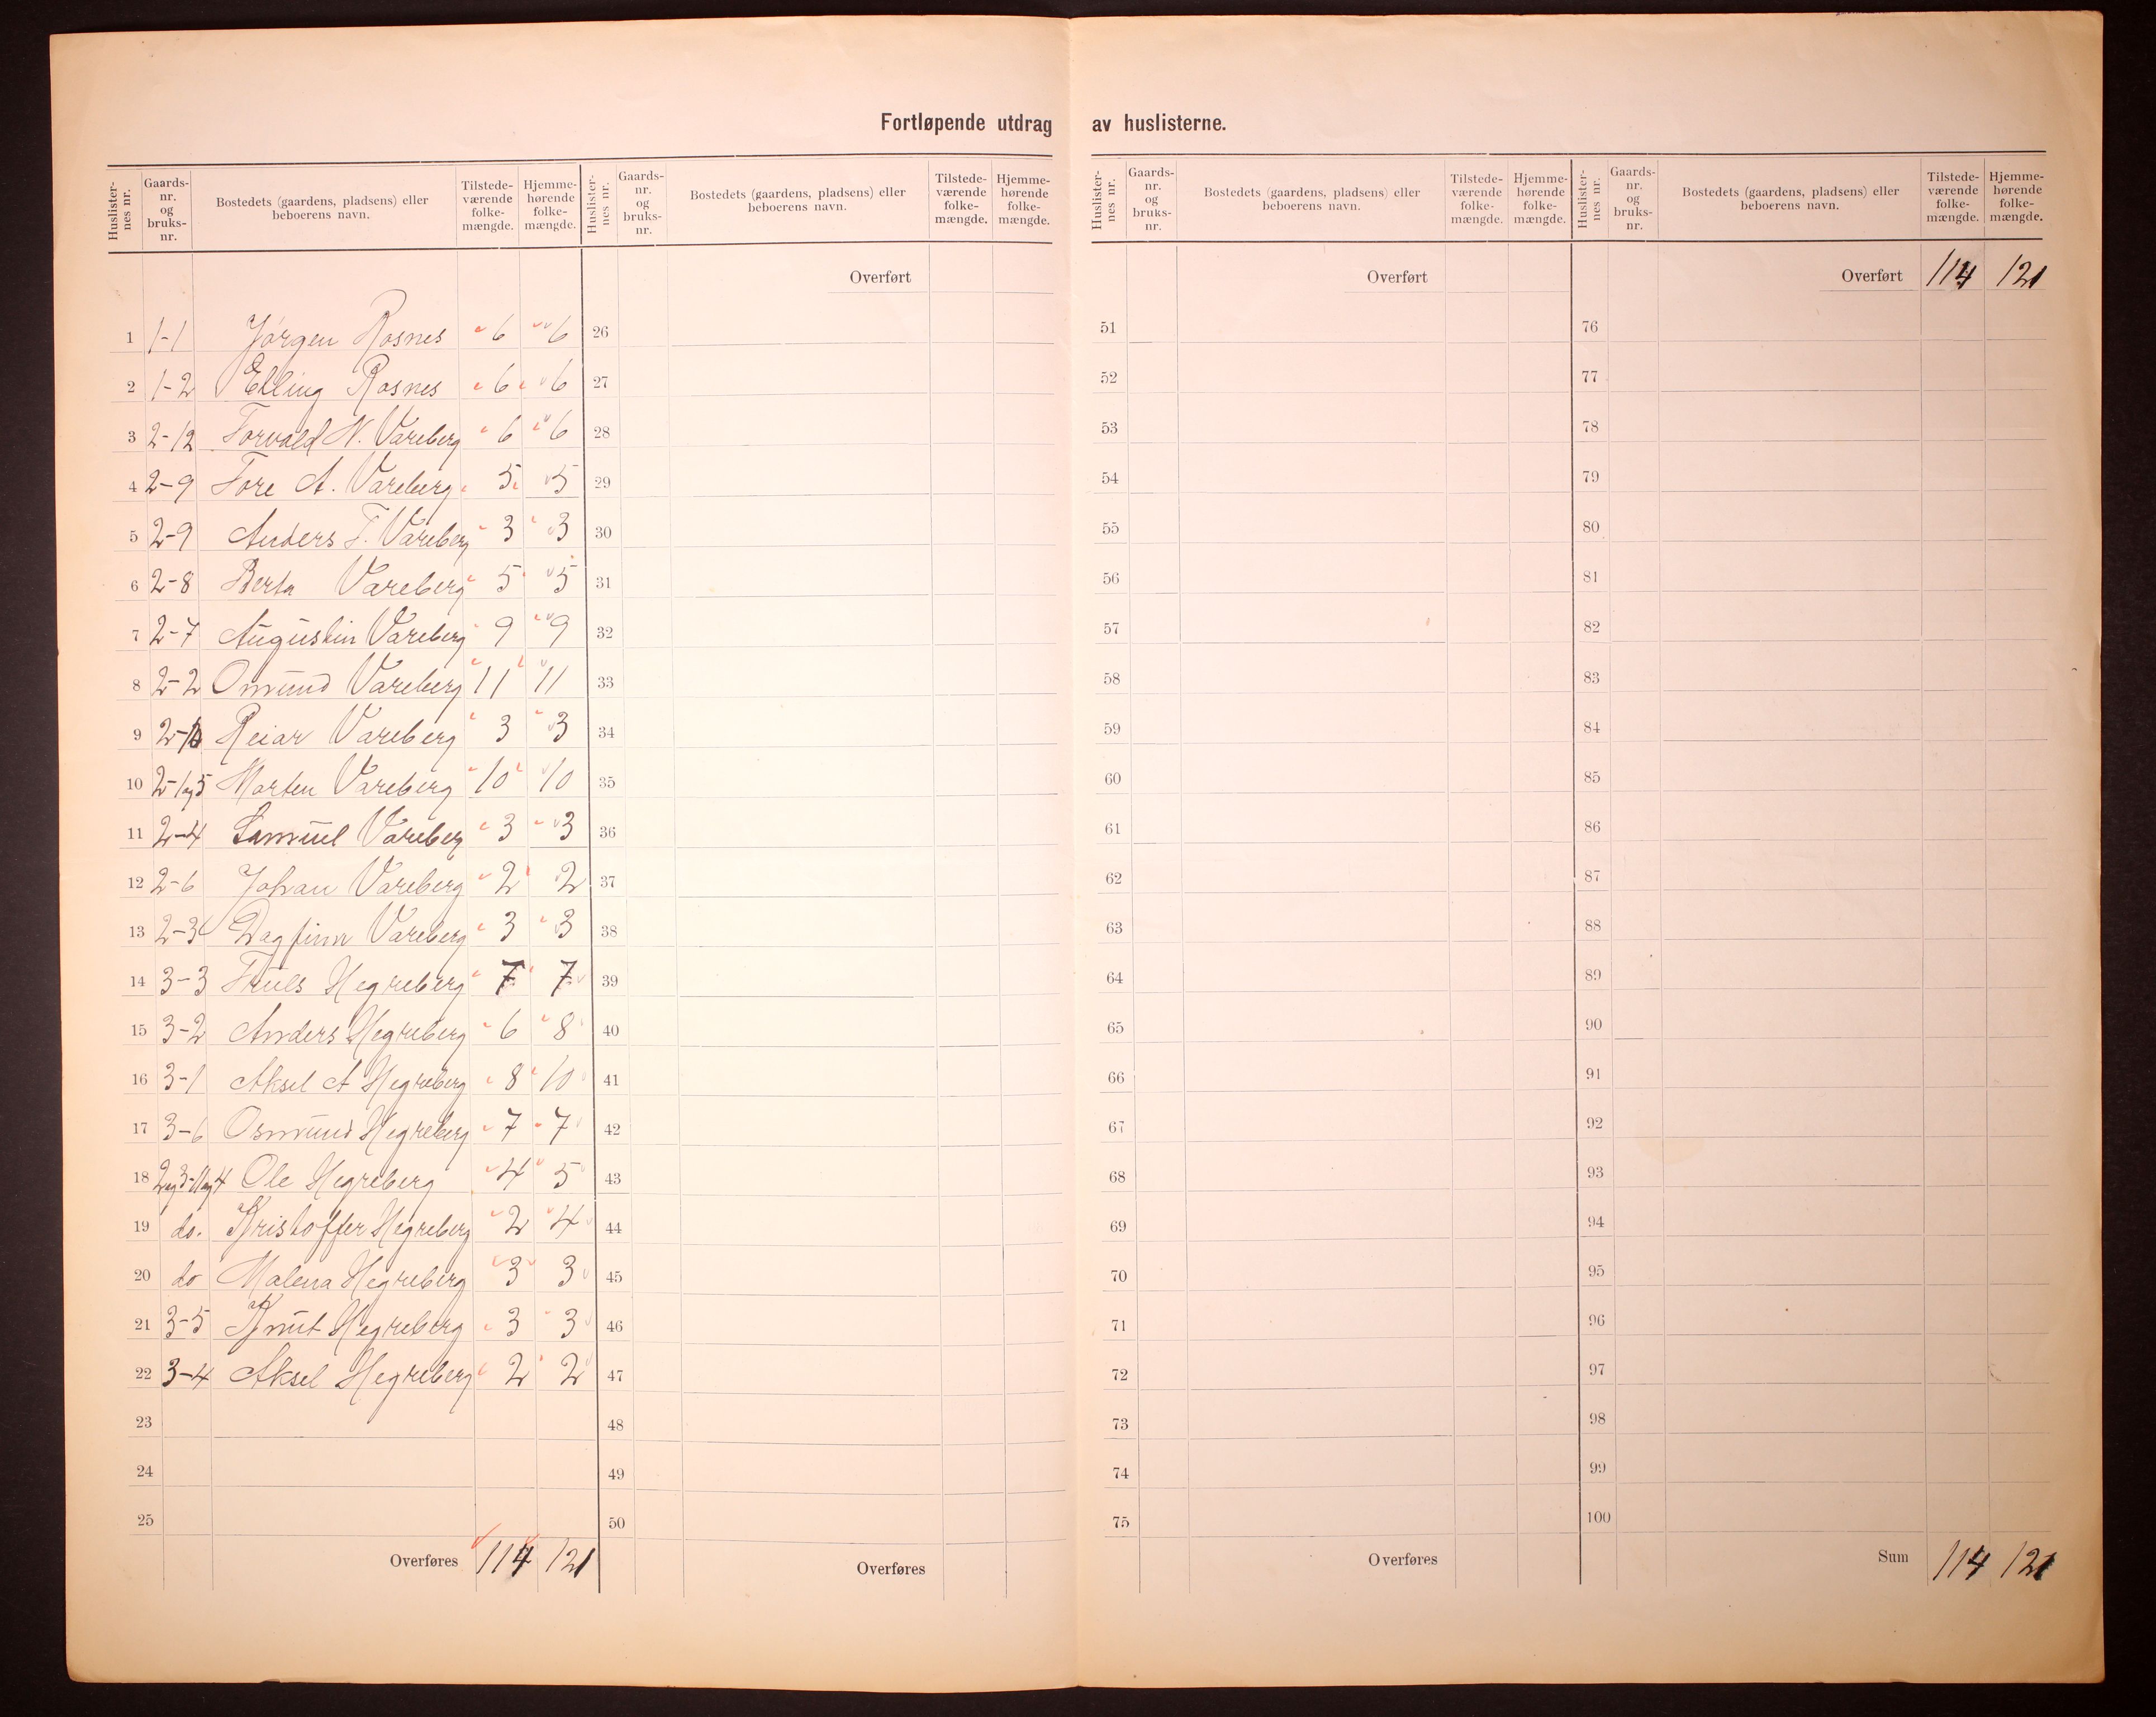 Fortløpende utdrag av huslisterne.
Huslister-nes nr. Gaards-nr. og bruks-nr. Bostedets (gaardens, pladsens) eller beboerens navn. Tilstede-værende folke-mængde. Hjemme-hørende folke-mængde.
Huslister-nes nr. Gaards-nr. og bruks-nr. Bostedets (gaardens, pladsens) eller beboerens navn. Tilstede-værende folke-mængde. Hjemme-hørende folke-mængde.
Huslister-nes nr. Gaards-nr. og bruks-nr. Bostedets (gaardens, pladsens) eller beboerens navn. Tilstede-værende folke-mængde. Hjemme-hørende folke-mængde.
Huslister-nes nr. Gaards-nr. og bruks-nr. Bostedets (gaardens, pladsens) eller beboerens navn. Tilstede-værende folke-mængde. Hjemme-hørende folke-mængde.
Overført Overført Overført 114 121
1 1-1 Jørgen Rosnes 6 6 26 51 76
2 1-2 Elling Rosnes 6 6 27 52 77
3 2-12 Torvald N. Vareberg 6 6 28 53 78
4 2-9 Tore A. Vareberg 5 5 29 54 79
5 2-9 Anders T. Vareberg 3 3 30 55 80
6 2-8 Berta Vareberg 5 5 31 56 81
7 2-7 Augustin Vareberg 9 9 32 57 82
8 2-2 Omund Vareberg 11 11 33 58 83
9 2-10 Reiar Vareberg 3 3 34 59 84
10 2-1og5 Morten Vareberg 10 10 35 60 85
11 2-4 Samuel Vareberg 3 3 36 61 86
12 2-6 Johan Vareberg 2 2 37 62 87
13 2-3 Dagfinn Vareberg 3 3 38 63 88
14 3-3 Truls Hegreberg 7 7 39 64 89
15 3-2 Anders Hegreberg 6 8 40 65 90
16 3-1 Aksel A Hegreberg 8 10 41 66 91
17 3-6 Osmund Hegreberg 7 7 42 67 92
18 2og3-11og4 Ole Hegreberg 4 5 43 68 93
19 do. Kristoffer Hegreberg 2 4 44 69 94
20 do Malena Hegreberg 3 3 45 70 95
21 3-5 Knut Hegreberg 3 3 46 71 96
22 3-4 Aksel Hegreberg 2 2 47 72 97
23 48 73 98
24 49 74 99
25 50 75 100
Overføres 114 121 Overføres Overføres Sum 114 121